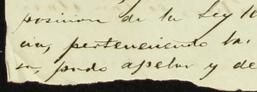 posicion de la Ley 10
cia, perteneciendo la
sa, pudo apelar y de